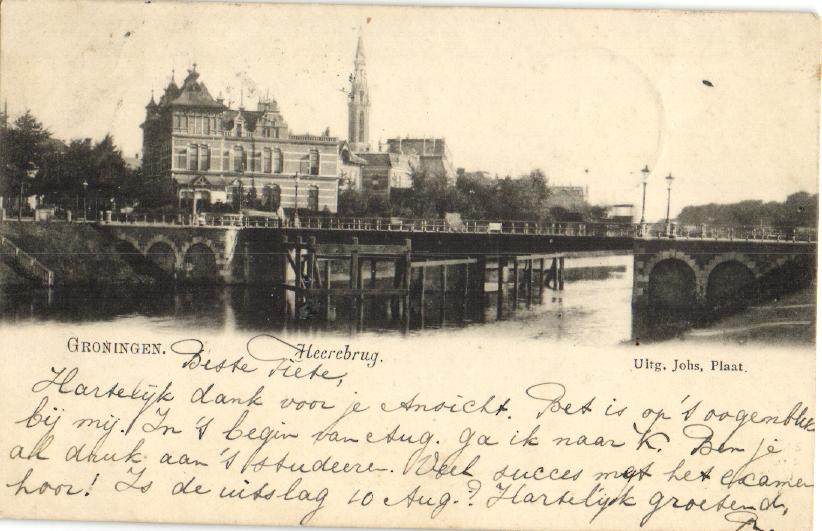 GRONINGEN. Heerebrug.
Uitg. Johs, Plaat.
Beste Tiete,
Hartelijk dank voor je Ansicht. Bet is op 't oogenblik
bij mij. In 't begin van Aug. ga ik naar K. Ben je
al druk aan 't studeeren. Veel succes met het examen
hoor! Is de uitslag 10 Aug.? Hartelijk groetend,